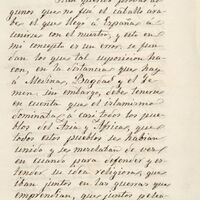 gunos que no fue el caballo ára-
be el que llegó á España á
unirse con el nuestro, y esto en
mi concepto es un error, se fun-
dan los que tal suposicion ha-
cen, en la distancia que hay
á Medina, Bagdad y el Ye-
men, sin embargo, debe tenerse
en cuenta que el islamismo
dominaba á casi todos los pue-
blos del Asia y Africa, que
todos estos pueblos se habian
unido y se mezclaban de vez
en cuando para defender y es-
tender su idea religiosa, que
iban juntos en las guerras que
emprendian, que juntos pelea-